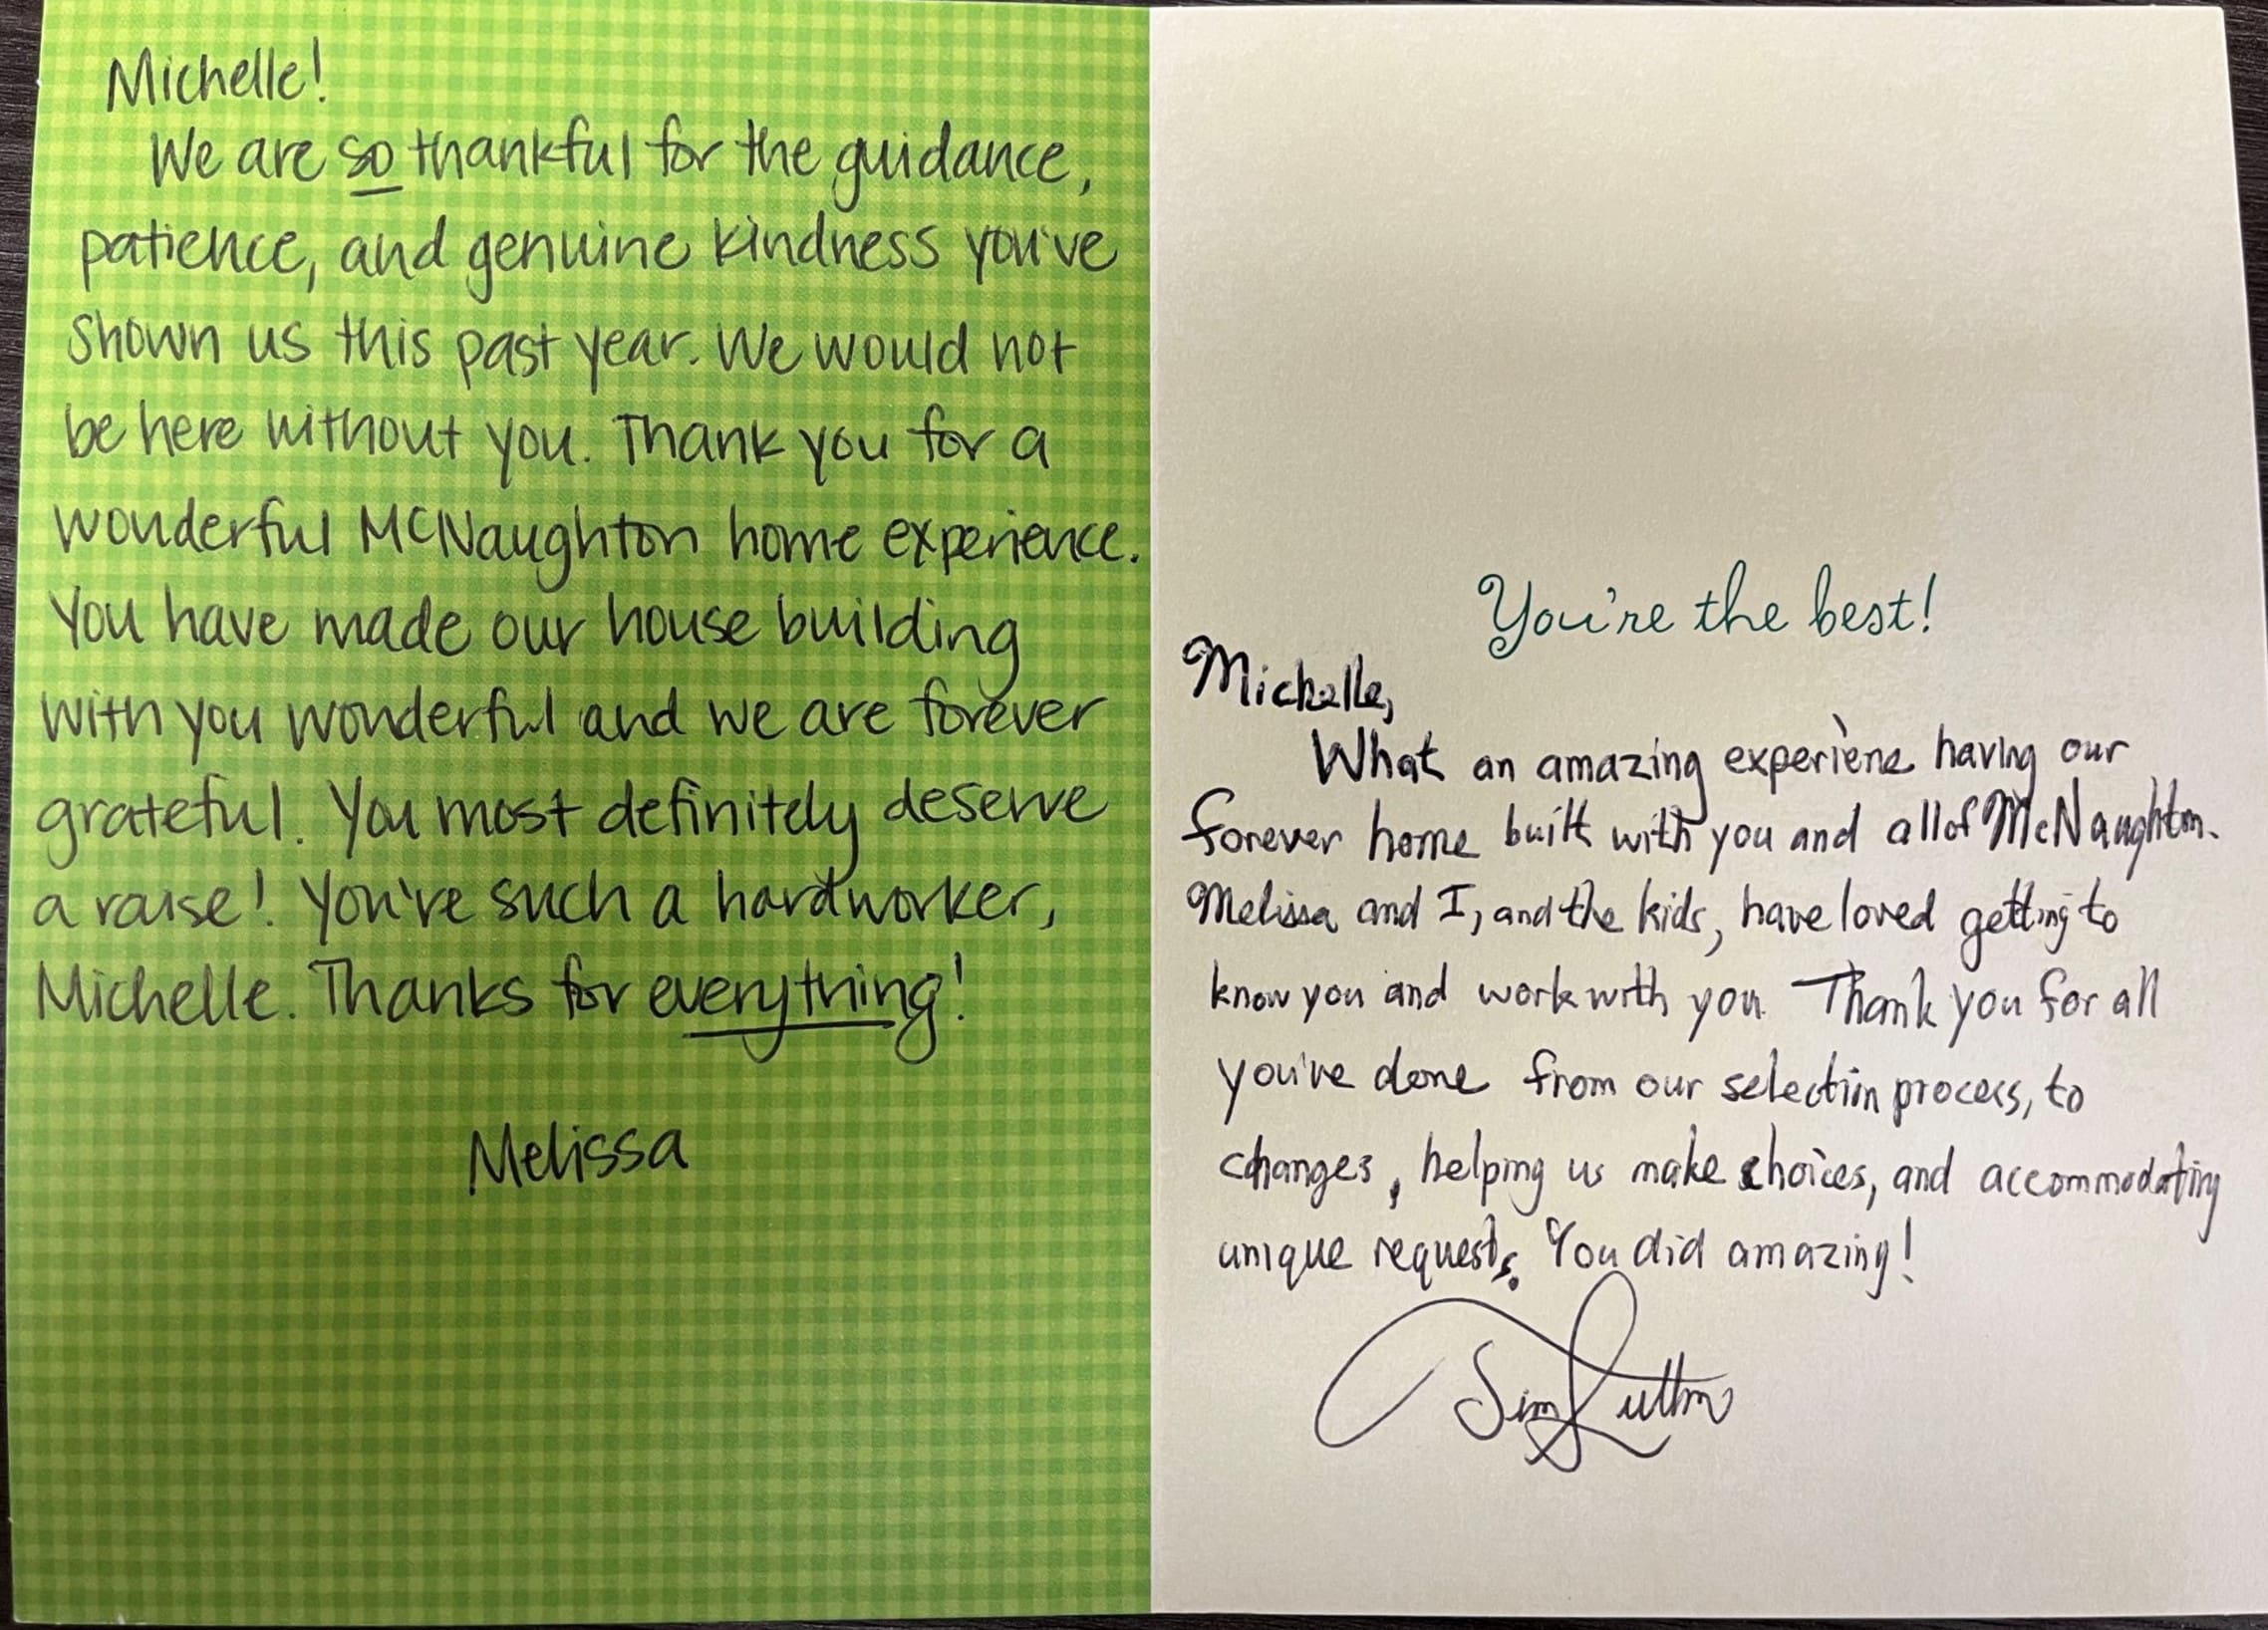 Michelle!
We are so thankful for the guidance,
patience, and genuine kindness you've
shown us this past year. We would not
be here without you. Thank you for a
wonderful McNaughton home experience.
You have made our house building
with you wonderful and we are forever
grateful. You most definitely deserve
a raise! You've such a hardworker,
Michelle. Thanks for everything!
Melissa
You're the best!
Michelle,
What an amazing experiene having our
forever home built with you and all of McNaughton.
Melissa and I, and the kids, have loved getting to
know you and work with you. Thank you for all
you've done from our selection process, to
changes, helping us make choices, and accommodating
unique requests. You did amazing!